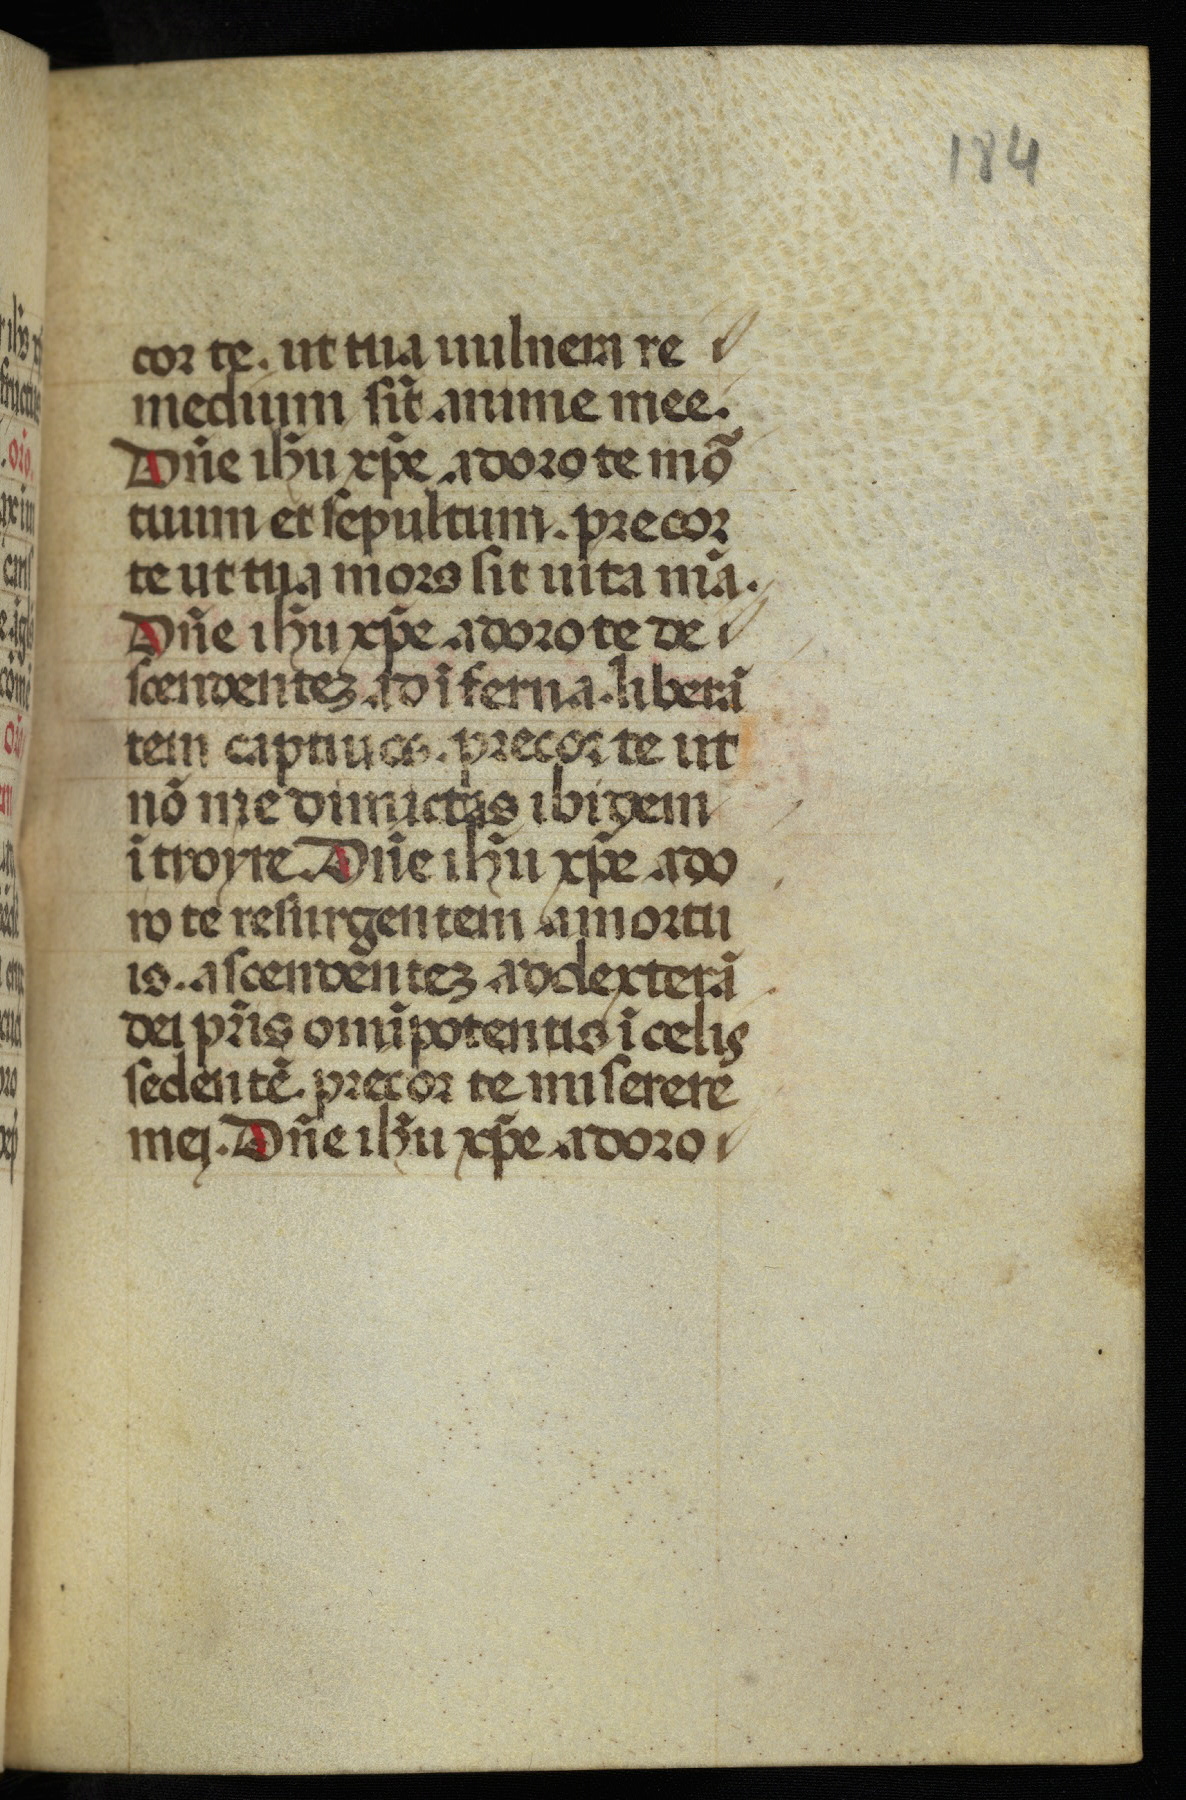 184
cor te. ut tua uulnera re
medium sit anime mee.
Dñe ihũ xp̃e adoro te mõ
tuum et sepultum. precor
te ut tua mors sit uita mã.
Dñe ihũ xp̃e adoro te de
scendentez ad ĩferna. liberã
tem captiuos. precor te ut
nõ me dimictas ibidem
ĩtroyre. Dñe ihũ xp̃e ado
ro te resurgentem a mortu
is. ascendentez ad dexterã
dei pr̃is omĩpotentis ĩ celis
sedentẽ. precor te miserere
mej. Dñe ihũ xp̃e adoro